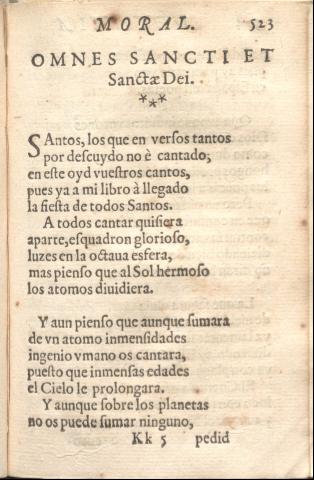 MORAL. 523
OMNES SANCTI ET
Sanctæ Dei.
***
SAntos, los que en versos tantos
por descuydo no è cantado;
en este oyd vuestros cantos,
pues ya a mi libro à llegado
la fiesta de todos Santos.
A todos cantar quisiera
aparte, esquadron glorioso,
luzes en la octaua esfera,
mas pienso que al Sol hermoso
los atomos diuidiera.
Y aun pienso que aunque sumara
de vn atomo inmensidades
ingenio vmano os cantara,
puesto que inmensas edades
el Cielo le prolongara.
Y aunque sobre los planetas
no os puede sumar ninguno,
Kk 5 pedid